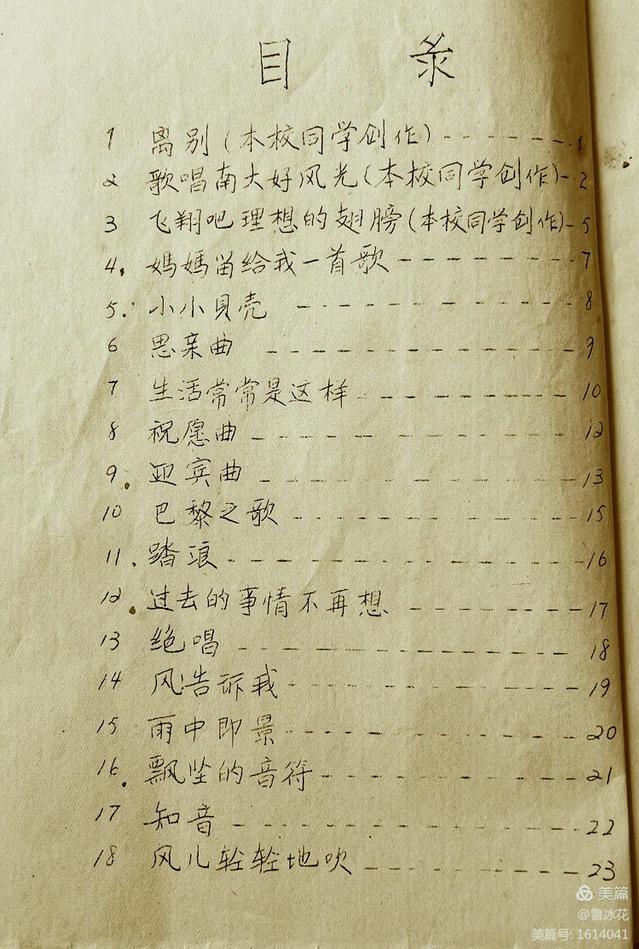 目 录
1 离别(本校同学创作)------1
2 歌唱南大好风光(本校同学创作)-2
3 飞翔吧理想的翅膀(本校同学创作)-5
4. 媽媽留给我一首歌---------7
5. 小小贝壳------------8
6 思亲曲--------------9
7 生活常常是这样----------10
8 祝愿曲--------------12
9. 迎宾曲-------------13
10 巴黎之歌------------15
11. 踏浪--------------16
12. 过去的事情不再想-------17
13 绝唱--------------18
14 风告诉我------------19
15 雨中即景------------20
16. 飘坠的音符----------21
17 知音--------------22
18 风儿轻轻地吹---------23
美篇
@鲁冰花
美篇号: 1614041